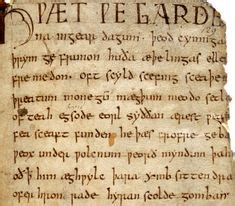 HǷÆT ǷE GARDE
na in gear dagum. þeod cyninga
þrym ge frunon huða æþelingas elle
fre medon. oft scyld scefing sceaþe
þreatum monegū mægþum meodo setla
of teah egsode eorl syððan ærest ƿear
fea sceaft funden he þæs frofre geba
ƿeox under ƿolcnum ƿeorð myndum þah
oð þ him æghƿylc þara ymb sittendra
ofer hron rade hyran scolde gomban